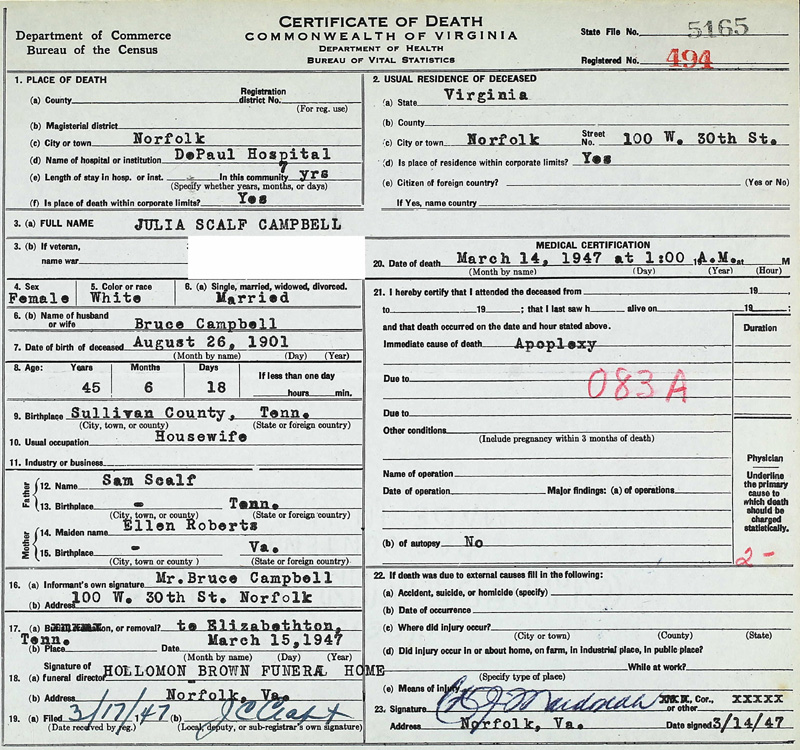 Department of Commerce
Bureau of the Census
CERTIFICATE OF DEATH
COMMONWEALTH OF VIRGINIA
DEPARTMENT OF HEALTH
BUREAU OF VITAL STATISTICS
State File No. 5165
Registered No. 494
1. PLACE OF DEATH
(a) County Registration district No.
(For reg. use)
(b) Magisterial district
(c) City or town Norfolk
(d) Name of hospital or institution DePaul Hospital
(e) Length of stay in hosp. or inst. In this community 7 yrs
(Specify whether years, months, or days)
(f) Is place of death within corporate limits? Yes
2. USUAL RESIDENCE OF DECEASED
(a) State Virginia
(b) County
(c) City or town Norfolk Street No. 100 W. 30th St.
(d) Is place of residence within corporate limits? Yes
(e) Citizen of foreign country? (Yes or No)
If Yes, name country
3. (a) FULL NAME JULIA SCALF CAMPBELL
3. (b) If veteran,
name war
4. Sex 5. Color or race 6. (a) Single, married, widowed, divorced.
Female White Married
6. (b) Name of husband
or wife Bruce Campbell
7. Date of birth of deceased August 26, 1901
(Month by name) (Day) (Year)
8. Age: Years Months Days If less than one day
45 6 18 hours min.
9. Birthplace Sullivan County, Tenn.
(City, town, or county) (State or foreign country)
10. Usual occupation Housewife
11. Industry or business
Father
12. Name Sam Scalf
13. Birthplace - Tenn.
(City, town, or county) (State or foreign country)
Mother
14. Maiden name Ellen Roberts
15. Birthplace - Va.
(City, town, or county) (State or foreign country)
16. (a) Informant's own signature Mr. Bruce Campbell
(b) Address 100 W. 30th St. Norfolk
17. (a) or removal? to Elizabethton,
Tenn. March 15, 1947
(b) Place Date
(Month by name) (Day) (Year)
18. (a) Signature of funeral director HOLLOMON BROWN FUNERAL HOME
(b) Address Norfolk, Va.
19. (a) Filed 3/17/47 (b)
(Date received by reg.) (Local, deputy, or sub-registrar's own signature)
MEDICAL CERTIFICATION
20. Date of death March 14, 1947 at 1:00 A.M. at M
(Month by name) (Day) (Year) (Hour)
21. I hereby certify that I attended the deceased from 19
to 19 ; that I last saw h alive on 19 ;
and that death occurred on the date and hour stated above.
Duration
Immediate cause of death Apoplexy
Due to 083A
Due to
Other conditions
(Include pregnancy within 3 months of death)
Name of operation
Date of operation Major findings: (a) of operations
Physician
Underline
the primary
cause to
which death
should be
charged
statistically.
(b) of autopsy No
2-
22. If death was due to external causes fill in the following:
(a) Accident, suicide, or homicide (specify)
(b) Date of occurrence
(c) Where did injury occur?
(City or town) (County) (State)
(d) Did injury occur in or about home, on farm, in industrial place, in public place?
While at work?
(Specify type of place)
(e) Means of injury
23. Signature Cor., XXXXX
or other
Address Norfolk, Va. Date signed 3/14/47